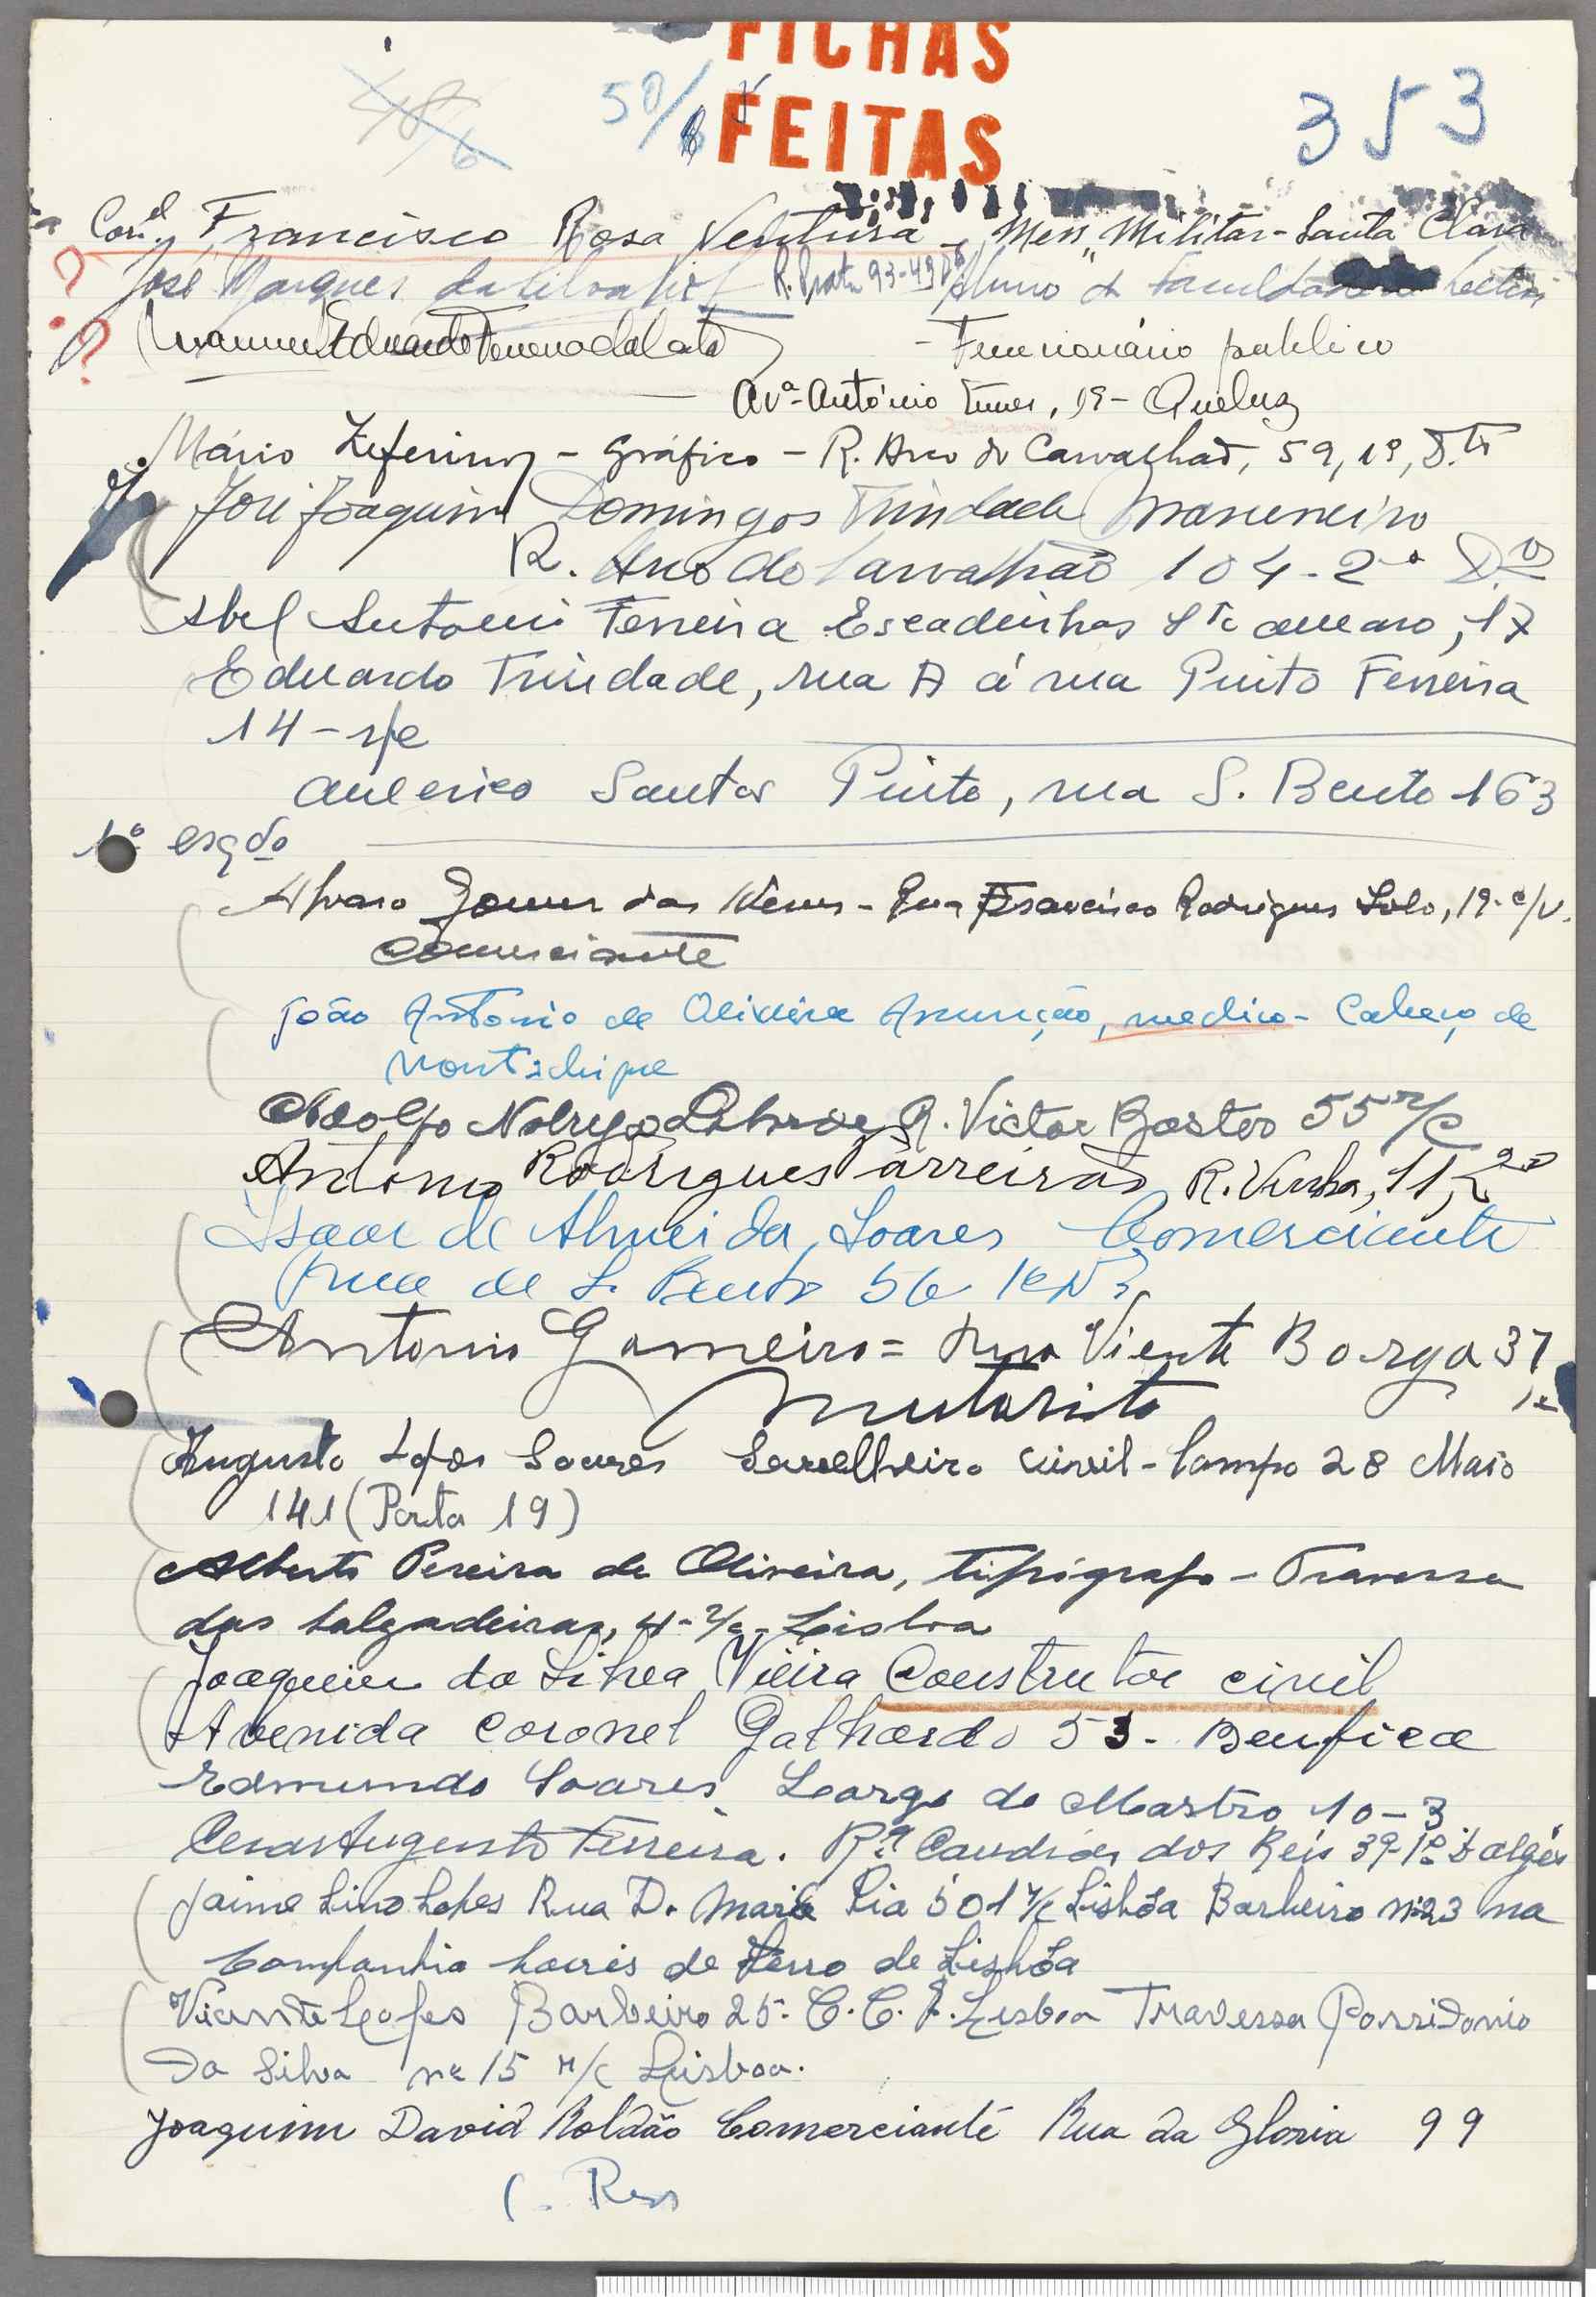 FICHAS
FEITAS
48/6
50/6
353
Cor.el Francisco Rosa Ventura - Mess. Militar - Santa Clara
José Marques da Silva R. Prata 93-4º D Aluno da Faculdade Letras
Manuel Eduardo da Costa - Funcionário publico
Avª António Enes, 1º - Queluz
Mário Zeferino - Gráfico - R. Arco do Carvalhão, 59, 1º, D.to
José Joaquim Domingos Trindade Marceneiro
R. Arco do Carvalhão 104-2º D.to
Abel Antonio Ferreira Escadinhas Sto Amaro, 17
Eduardo Trindade, rua A á rua Pinto Ferreira
14-r/c
Americo Santos Pinto, rua S. Bento 163
1º esqdo
Alvaro Gomes das Neves - Rua Francisco Rodrigues Lobo, 19-c/v.
Comerciante
João Antonio de Oliveira Anunção, medico - Cabeço de
Montachique
Adolfo Nobrega R. Victor Bastos 55 r/c
António Rodrigues Parreiras R. Vinha, 11, 2º
Isaac de Almeida Soares Comerciante
Rua de S. Bento 56 1º
Antonio Gameiro = Rua Vicente Borga 37
Motorista
Augusto Lopes Soares Serralheiro civil - Campo 28 Maio
141 (Porta 19)
Alberto Pereira de Oliveira, tipógrafo - Travessa
das Salgadeiras, 4-r/c - Lisboa
Joaquim da Silva Vieira Construtor civil
Avenida Coronel Galhardo 53 - Benfica
Edmundo Soares Largo do Mastro 10-3
Cesar Augusto Ferreira. Rª Candido dos Reis 39-1º D Algés
Jaime Lino Lopes Rua D. Maria Pia 501 r/c Lisbôa Barbeiro nº 23 na
Companhia Carris de Ferro de Lisbôa
Vicente Lopes Barbeiro 25. C.C.F. Lisboa Travessa Possidonio
da Silva nº 15 r/c Lisboa.
Joaquim David Roldão Comerciante Rua da Gloria 99